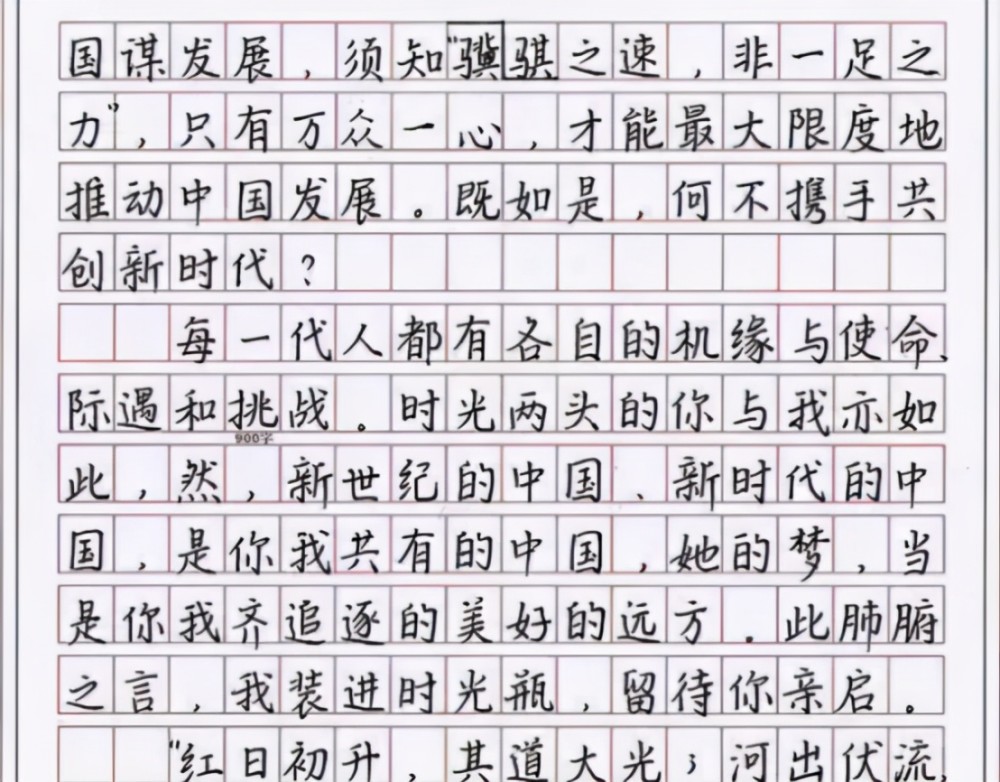 国谋发展，须知“骥骐之速，非一足之
力”，只有万众一心，才能最大限度地
推动中国发展。既如是，何不携手共
创新时代？
每一代人都有各自的机缘与使命、
际遇和挑战。时光两头的你与我亦如
900字
此，然，新世纪的中国、新时代的中
国，是你我共有的中国，她的梦，当
是你我齐追逐的美好的远方。此肺腑
之言，我装进时光瓶，留待你亲启。
“红日初升，其道大光；河出伏流，